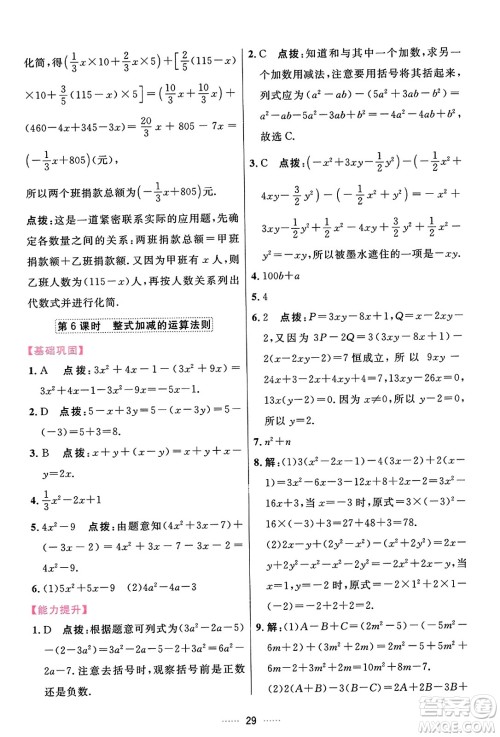 化简,得(1/3x×10+1/3x×5)+[3/5(115-x)
×10+3/5(115-x)×5]=20/3x+805-7x+
(460-4x+345-3x)=20/3x+805-7x=
(-1/3x+805)(元).
所以两个班捐款总额为(-1/3x+805)元.
点拨:这是一道紧密联系实际的应用题,先确
定各数量之间的关系:两班捐款总额=甲班
捐款额+乙班捐款额;若甲班有x人,可知
乙班人数为(115-x)人,再按人数关系列出
代数式并进行化简.
第6课时 整式加减的运算法则
【基础巩固】
1. A 点拨:3x²+4x-1-(3x²+9x)=
3x²+4x-1-3x²-9x=-5x-1.
2. D 点拨:(x+3y)+5=5-(-x-3y)=5-
(-3)=5+3=8.
3. B 点拨:x+y+(x-y)=x+y+x-
y=2x.
4. 1/2x²-2x+1
5. 4x²-9 点拨:由题意知(5x²-2x+7)+
(-x²+2x-16)=5x²-2x+7-x²+2x-
16=4x²-9.
6. (1)5x²+x (2)4a²-2a-5
【能力提升】
1. D 点拨:根据题意可列式为(3a²-2a-5)-
(-3a²)=3a²-2a-5+3a²=6a²-2a-
5.注意去括号时,观察括号前是正数
还是负数.
2. C 点拨:知道和与其中一个加数,求另一
个加数用减法,注意要用括号将其括起来,
列式应为(a²-4b²)-(a²+b²)=
a²-4b²-a²-b²=-5b².
故选C.
3. C 点拨:(-x²+3xy-1/2y²)-(-1/2x²+
4xy-3/2y²)-(-1/2x²+y²)=-x²+3xy-
1/2y²+1/2x²-4xy+3/2y²+1/2x²-y²=
-xy.所以被墨水遮住的一项应是-xy.
4. 100b+a
5. 4
6. 2 点拨:P=3xy-8x+1,Q=x-2xy-2,
因为3P-2Q=3(3xy-8x+1)-2(x-
2xy-2)=7恒成立,所以9xy-
24x+3-2x+4xy+4=7,13xy-26x=0,
13x(y-2)=0.因为x≠0,所以y-2=
0,所以y=2.
7. n²+n
8. 解:(1)3(x²-2x-1)-(-2+3x-
13x²)=3x²-6x-3+2-3x+13x²=
16x²-9x-1.当x=-3时,原式=
16×(-3)²-9×(-3)-1=144+27-
1=170.
(2)2x²-y²+(2y²-x²)-(x²+2y²)
=2x²-y²+2y²-x²-x²-2y²=-y².
把x=3,y=-2代入上式,得原式=
-(-2)²=-4.
9. 解:(1)A-B+C=(2m²-2m-1)-
(m²-m+2)+(-m-2)=2m²-2m-
1-m²+m-2-m-2=m²-2m-5.
(2)2A-3B+2C=2(2m²-2m-1)-
29